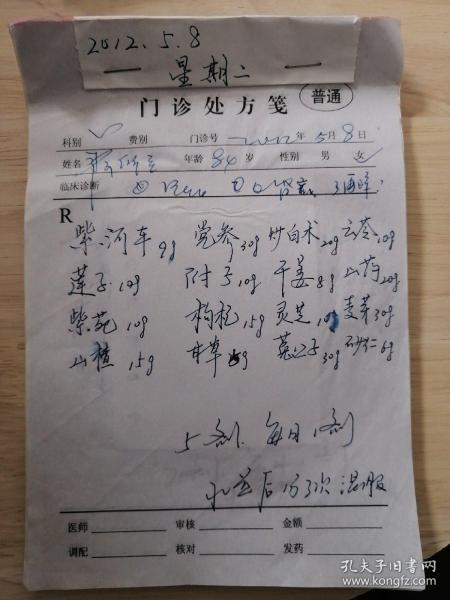 2012.5.8
星期二
门诊处方笺 普通
科别 费别 门诊号 2012年5月8日
姓名 年龄 84 岁 性别 男 女
临床诊断
R
紫河车9g 党参30g 炒白术20g 云苓10g
莲子10g 附子10g 干姜8g 山药20g
紫菀10g 枸杞15g 灵芝10g 麦芽30g
山楂15g 甘草 砂仁6g
5剂 每日1剂
水煎后分3次温服
医师 审核 金额
调配 核对 发药
孔夫子旧书网
www.kongfz.com